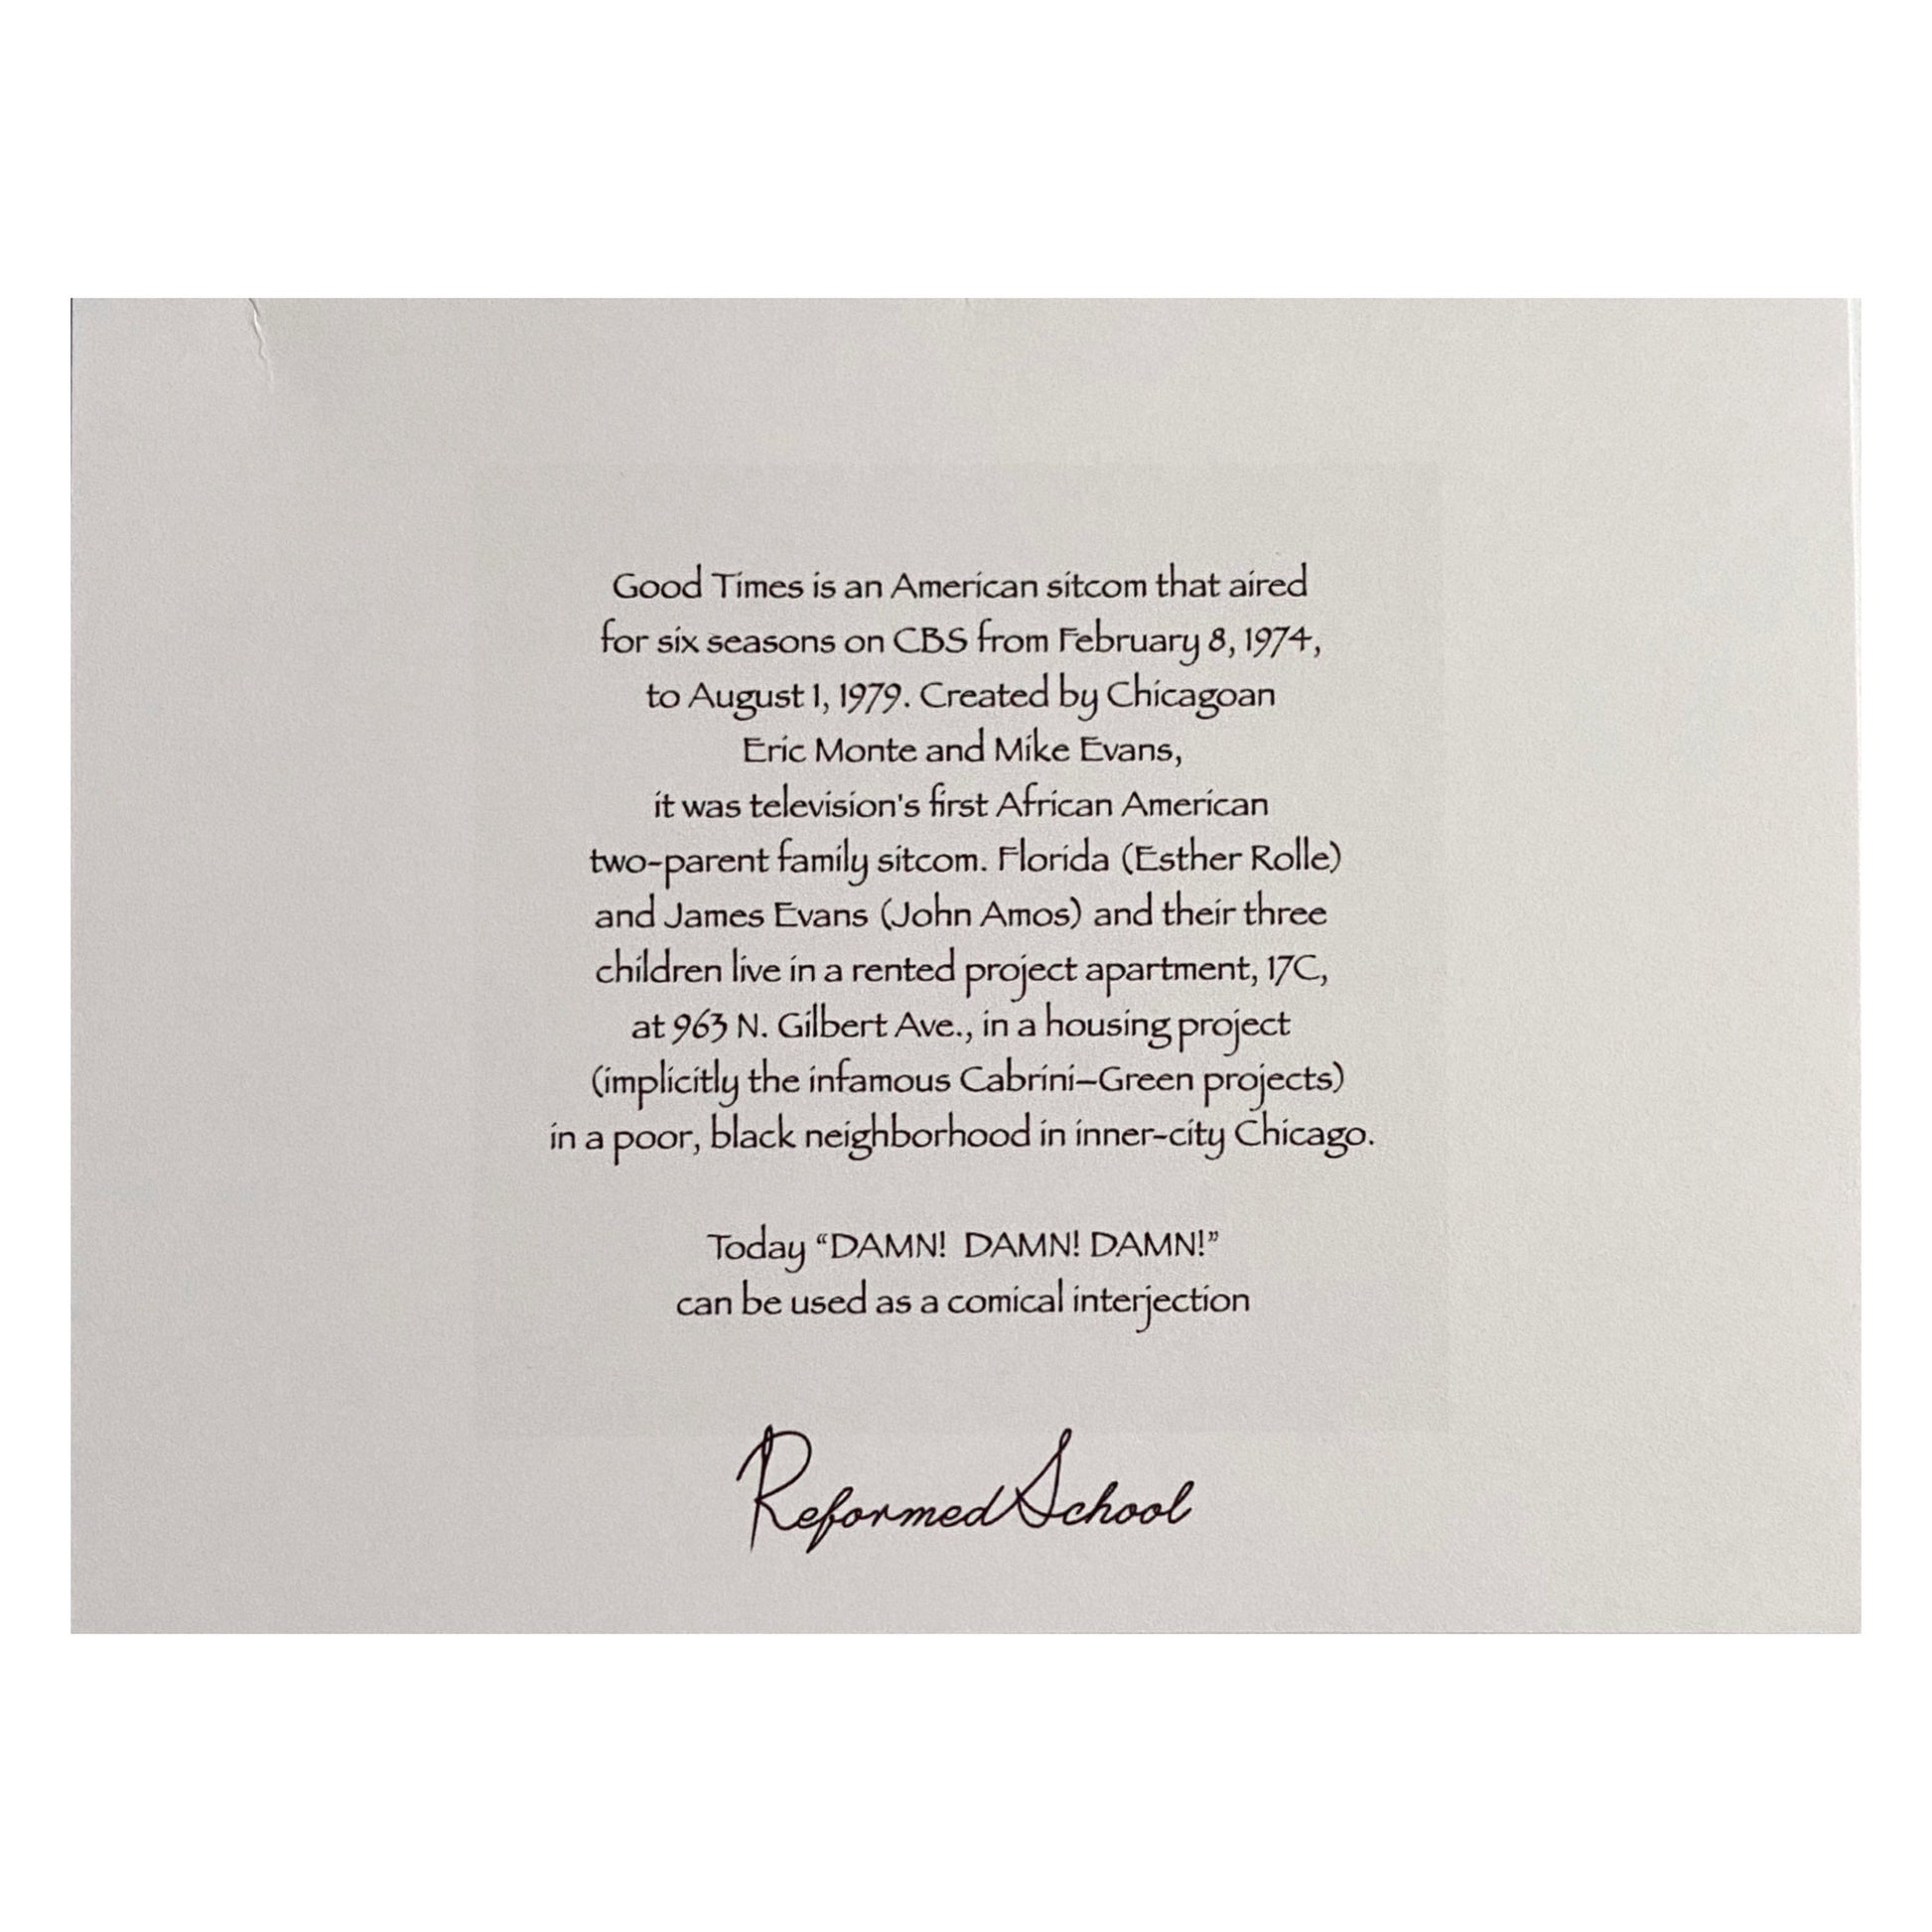 Good Times is an American sitcom that aired
for six seasons on CBS from February 8, 1974,
to August 1, 1979. Created by Chicagoan
Eric Monte and Mike Evans,
it was television's first African American
two-parent family sitcom. Florida (Esther Rolle)
and James Evans (John Amos) and their three
children live in a rented project apartment, 17C,
at 963 N. Gilbert Ave., in a housing project
(implicitly the infamous Cabrini–Green projects)
in a poor, black neighborhood in inner-city Chicago.
Today “DAMN!  DAMN! DAMN!”
can be used as a comical interjection
Reformed School